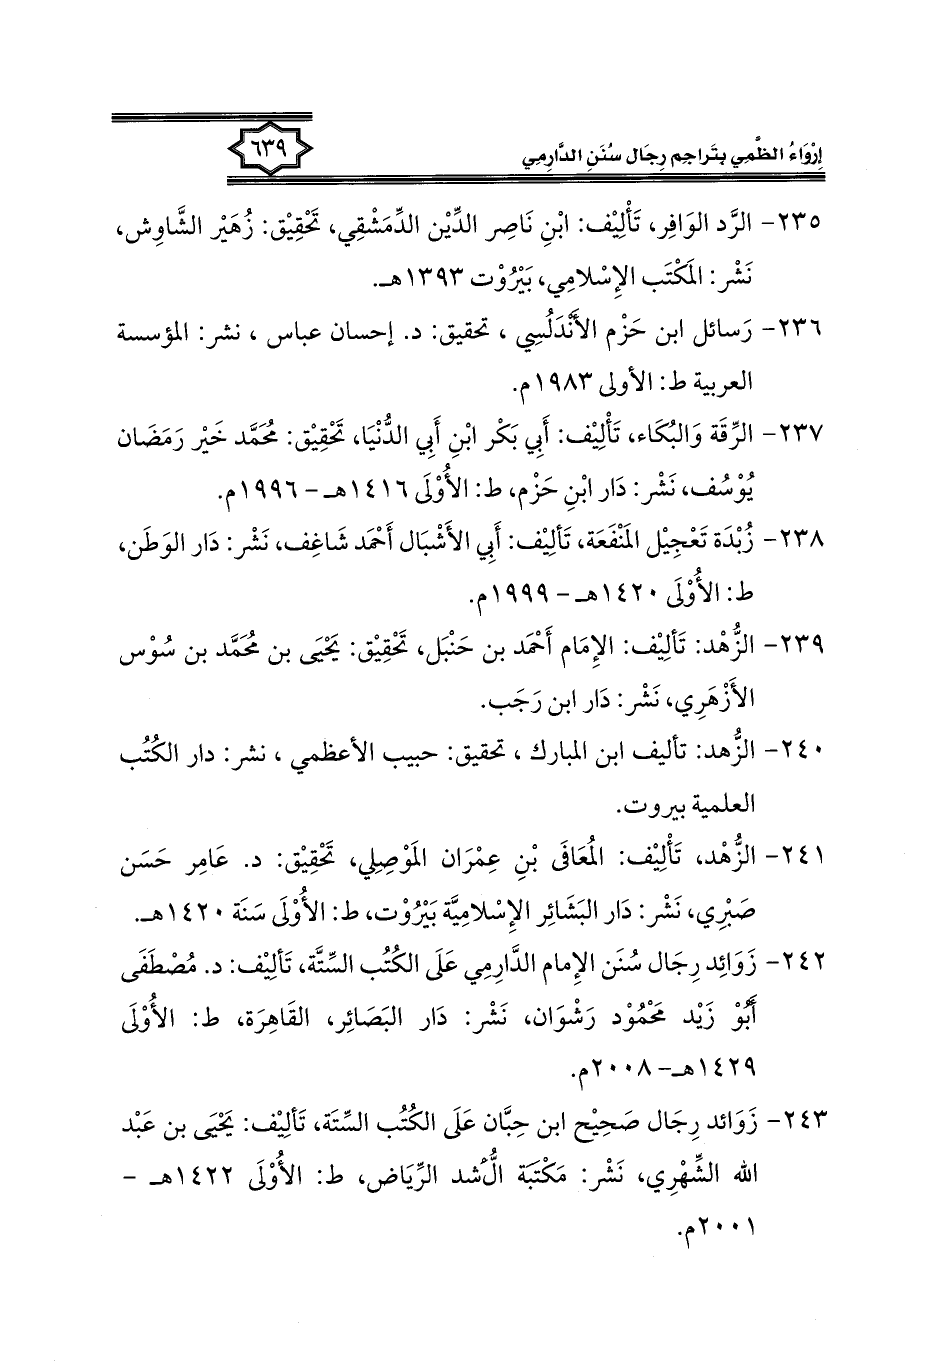 إِرْوَاءُ الظَّمِي بتَراجم رِجَال سُنَنِ الدَّارِمِي
٦٣٩
٢٣٥- الرَّد الوَافِر، تَأْلِيْف: ابْنِ نَاصِر الدِّيْن الدِّمَشْقِي، تَحْقِيْق: زُهَيْر الشَّاوِش،
نَشْر: المَكْتَب الإِسْلامِي، بَيْرُوْت ١٣٩٣هـ.
٢٣٦- رَسائل ابن حَزْم الأَنْدَلُسِي ، تحقيق: د. إحسان عباس ، نشر: المؤسسة
العربية ط: الأولى ١٩٨٣م.
٢٣٧- الرِّقَة وَالبُكَاء، تَأْلِيْف: أَبِي بَكْر ابْنِ أَبِي الدُّنْيَا، تَحْقِيْق: مُحَمَّد خَيْر رَمَضَان
يُوْسُف، نَشْر: دَار ابْنِ حَزْم، ط: الأُوْلَى ١٤١٦هـ - ١٩٩٦م.
٢٣٨- زُبْدَة تَعْجِيْل المَنْفَعَة، تَأْلِيْف: أَبِي الأَشْبَال أَحْمَد شَاغِف، نَشْر: دَار الوَطَن،
ط: الأُوْلَى ١٤٢٠هـ - ١٩٩٩م.
٢٣٩- الزُّهْد: تَألِيْف: الإِمَام أَحْمَد بن حَنْبَل، تَحْقِيْق: يَحْيَى بن مُحَمَّد بن سُوْس
الأَزْهَرِي، نَشْر: دَار ابن رَجَب.
٢٤٠- الزُّهد: تأليف ابن المبارك ، تحقيق: حبيب الأعظمي ، نشر: دار الكُتُب
العلمية بيروت.
٢٤١- الزُّهْد، تَألِيْف: المُعَافَى بْنِ عِمْرَان المَوْصِلِي، تَحْقِيْق: د. عَامِر حَسَن
صَبْرِي، نَشْر: دَار البَشَائِر الإِسْلامِيَّة بَيْرُوْت، ط: الأُوْلَى سَنَة ١٤٢٠هـ.
٢٤٢- زَوَائِد رِجَال سُنَن الإِمَام الدَّارِمِي عَلَى الكُتُب السِّتَّة، تَألِيْف: د. مُصْطَفَى
أَبُوْ زَيْد مَحْمُوْد رَشْوَان، نَشْر: دَار البَصَائِر، القَاهِرَة، ط: الأُوْلَى
١٤٢٩هـ- ٢٠٠٨م.
٢٤٣- زَوَائد رِجَال صَحِيْح ابن حِبَّان عَلَى الكُتُب السِّتَة، تَألِيْف: يَحْيَى بن عَبْد
الله الشَّهْرِي، نَشْر: مَكْتَبَة الُّشد الرِّيَاض، ط: الأُوْلَى ١٤٢٢هـ -
٢٠٠١م.